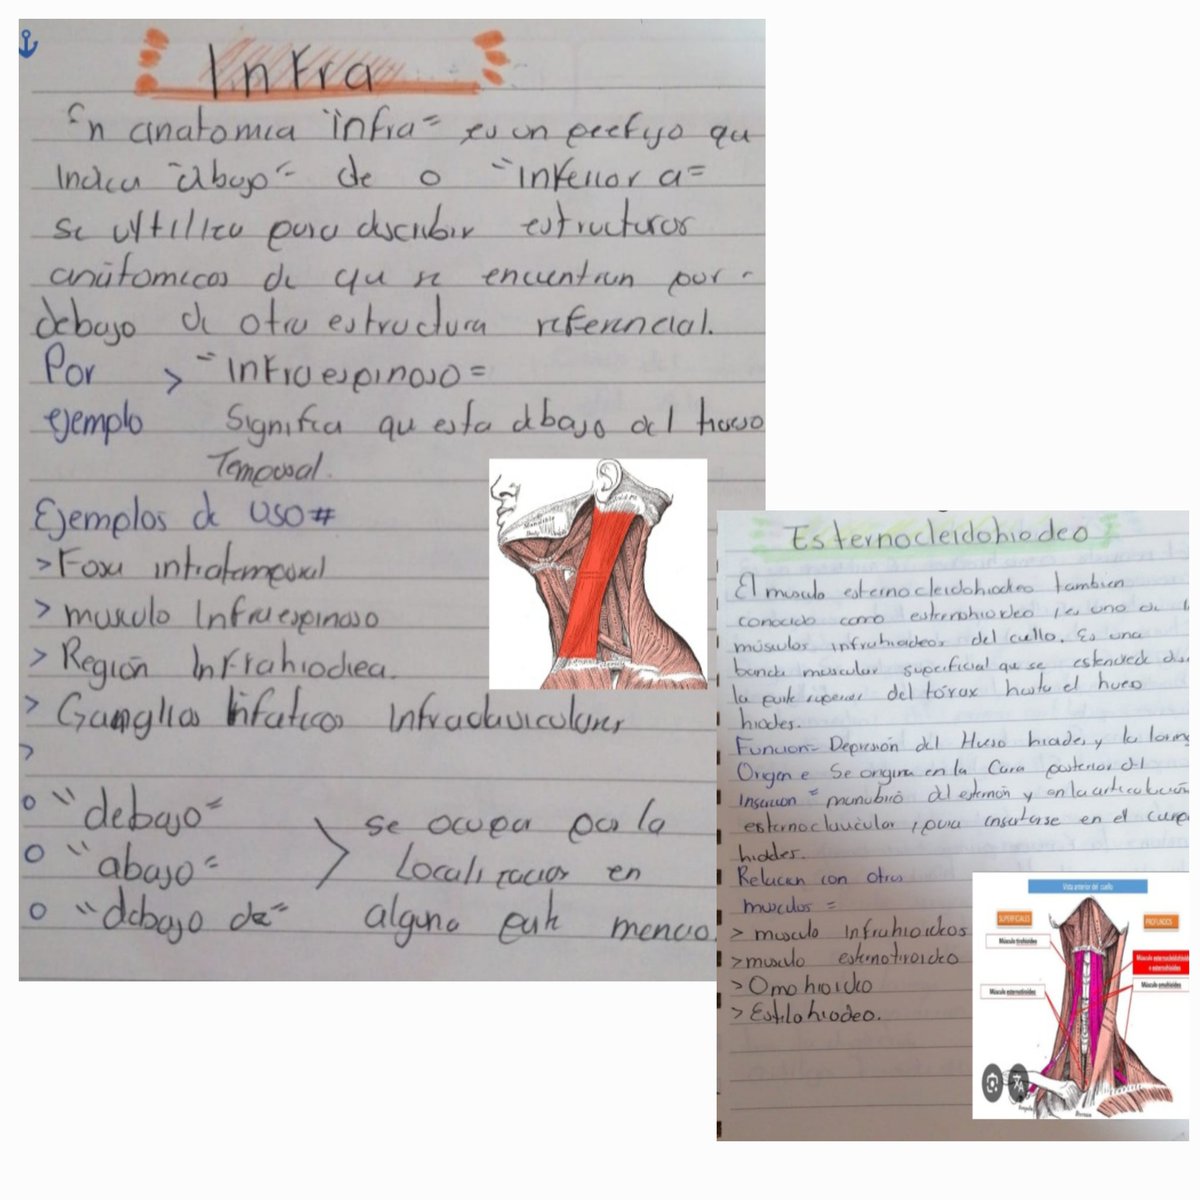 Infra
En anatomia "infra" es un prefijo que
indica "abajo" de o "inferior a"
se utiliza para describir estructuras
anatomicas de que se encuentran por
debajo de otra estructura referencial.
Por > "Infraespinoso"
ejemplo Significa que esta debajo del hueso
Temporal.
Ejemplos de uso#
> Fosa infratemporal
> musculo Infraespinoso
> Región Infrahiodea.
> Ganglios linfaticos infraclaviculares
>
o "debajo"
o "abajo"
o "debajo de"
> se ocupa para
Localizacion en
alguna parte mencio
Esternocleidohiodeo
El musculo esternocleidohiodeo tambien
conocido como esternohiodeo, es uno de l
músculos infrahiodeos del cuello. Es una
banda muscular superficial que se estendede des
la parte superior del tórax hasta el hueso
hiodes.
Funcion= Depresión del Hueso hiodes y la laring
Origen e Se origina en la Cara posterior del
Insercion = manubrio del esternón y en la articulación
esternoclavicular, para insertarse en el cuerp
hiodes.
Relacion con otros
musculos =
> musculo Infrahioideos
> musculo esternotiroideo
> Omohioideo
> Estilohiodeo.
Vista anterior del cuello
SUPERFICIALES
PROFUNDOS
Músculo tirohioideo
Músculo esternocleidohioideo
o esternohioideo
Músculo esternotiroideo
Músculo omohioideo